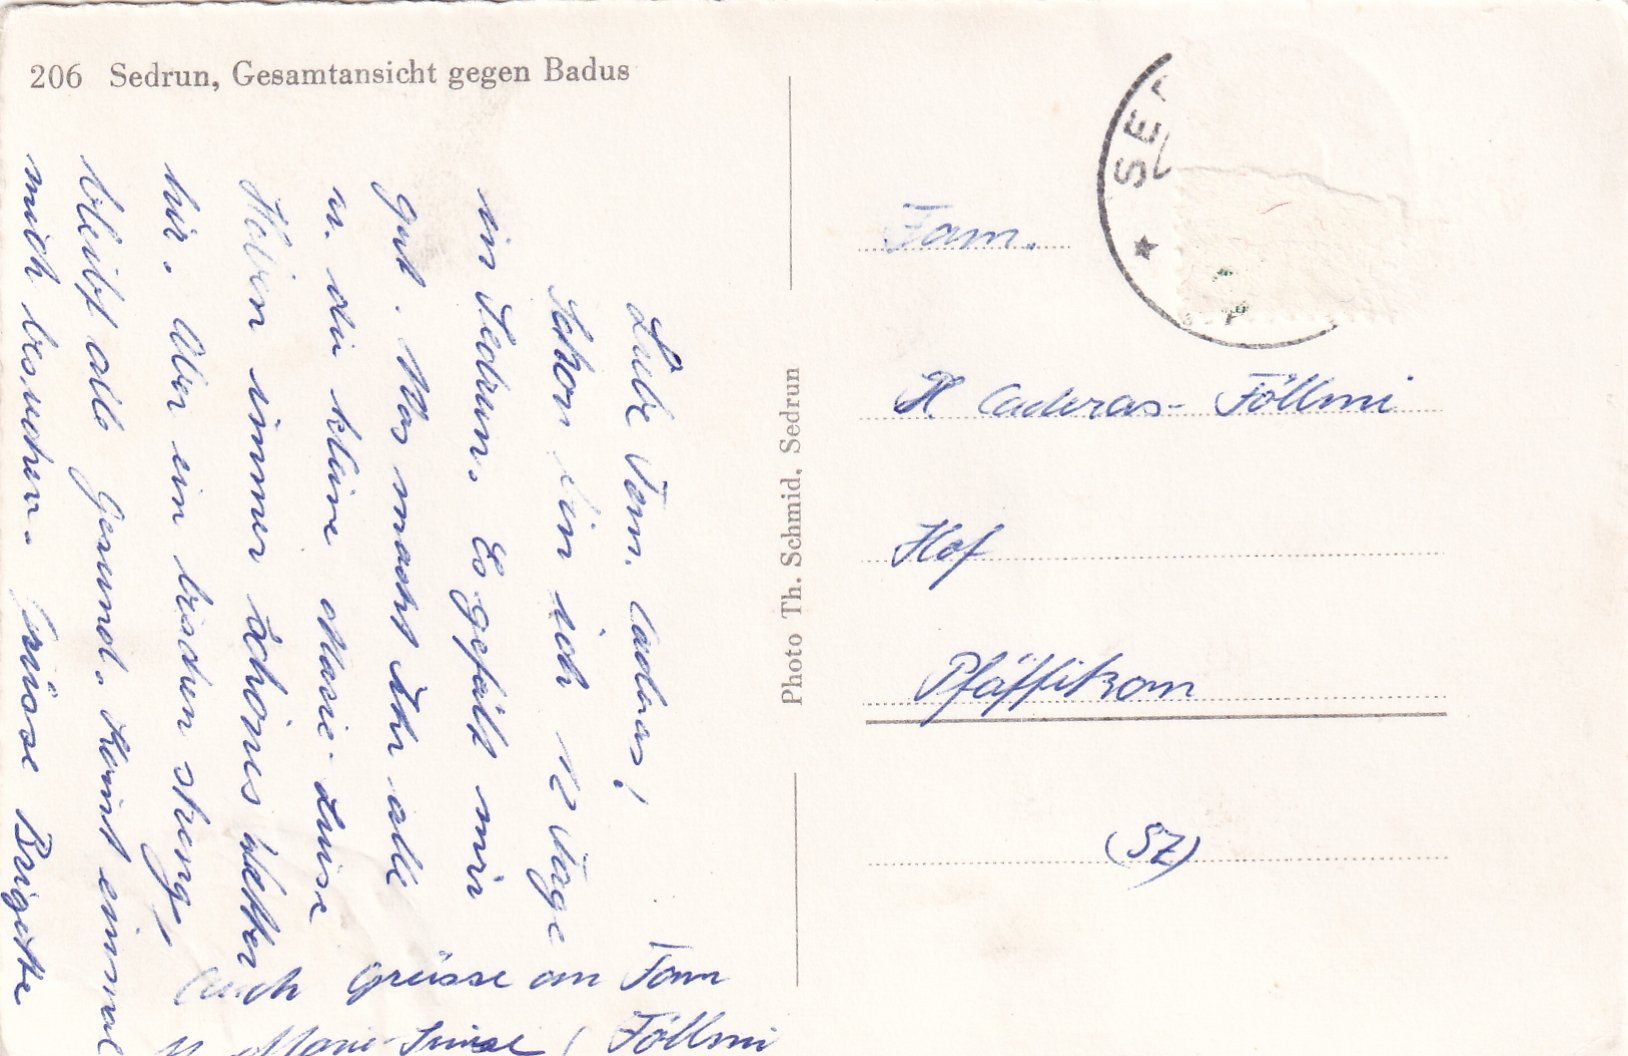 206 Sedrun, Gesamtansicht gegen Badus
Liebe Fam. Caderas!
Schon bin ich 12 Tage
in Sedrun. Es gefällt mir
gut. Was macht Ihr alle
u. die kleine Marie-Luise
Haben immer schönes Wetter
hir. Aber ein bischen streng,
bleibt alle Gesund. Komt einmal
mich besuchen. Grüsse Brigitte
Auch Grüsse an Fam
Marie-Luise / Föllmi
Photo Th. Schmid, Sedrun
SE
Fam.
Caderas-Föllmi
Hof
Pfäffikon
(SZ)